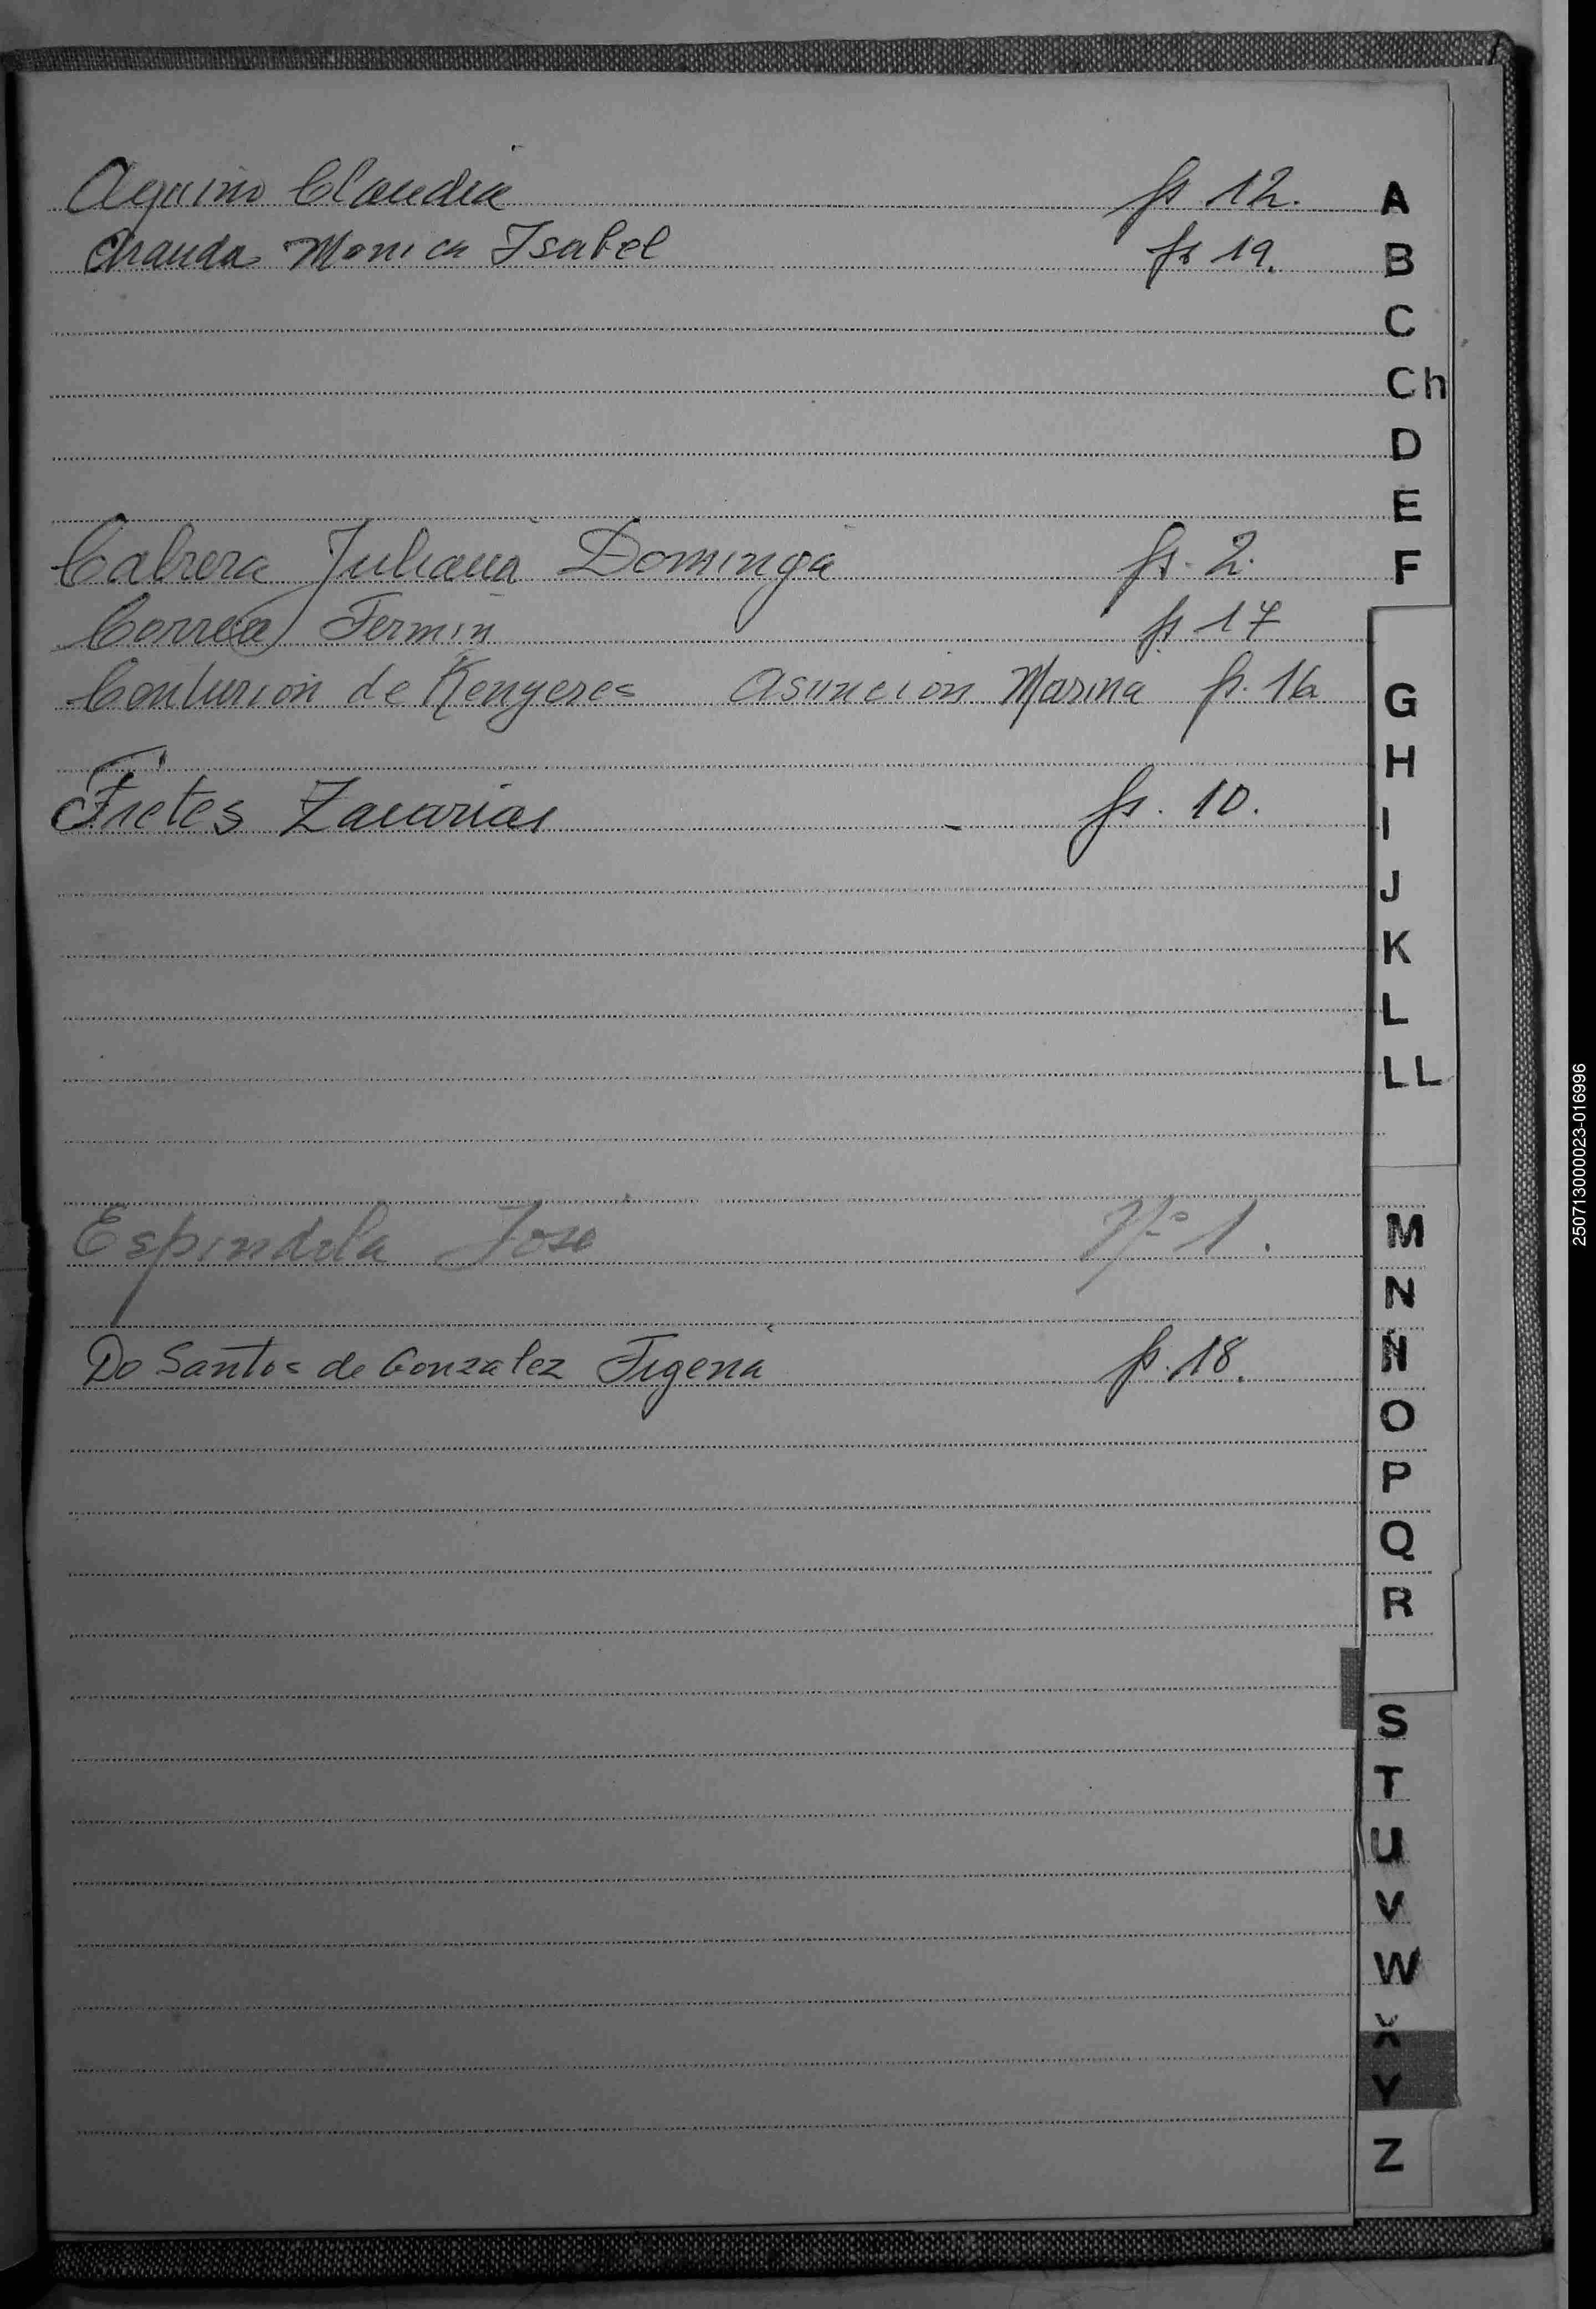 Aquino Claudia fs 12. A
Aranda Monica Isabel fs 19. B
C
Ch
D
E
Cabrera Juliana Dominga fs. 2. F
Correa Fermin fs 17
Centurion de Kenyeres Asuncion Marina fs. 16 G
H
Fretes Zacarias fs. 10. I
J
K
L
LL
Espindola Jose Nº 1. M
N
Do Santos de Gonzalez Figena fs. 18. Ñ
O
P
Q
R
S
T
U
V
W
X
Y
Z
250713000023-016996